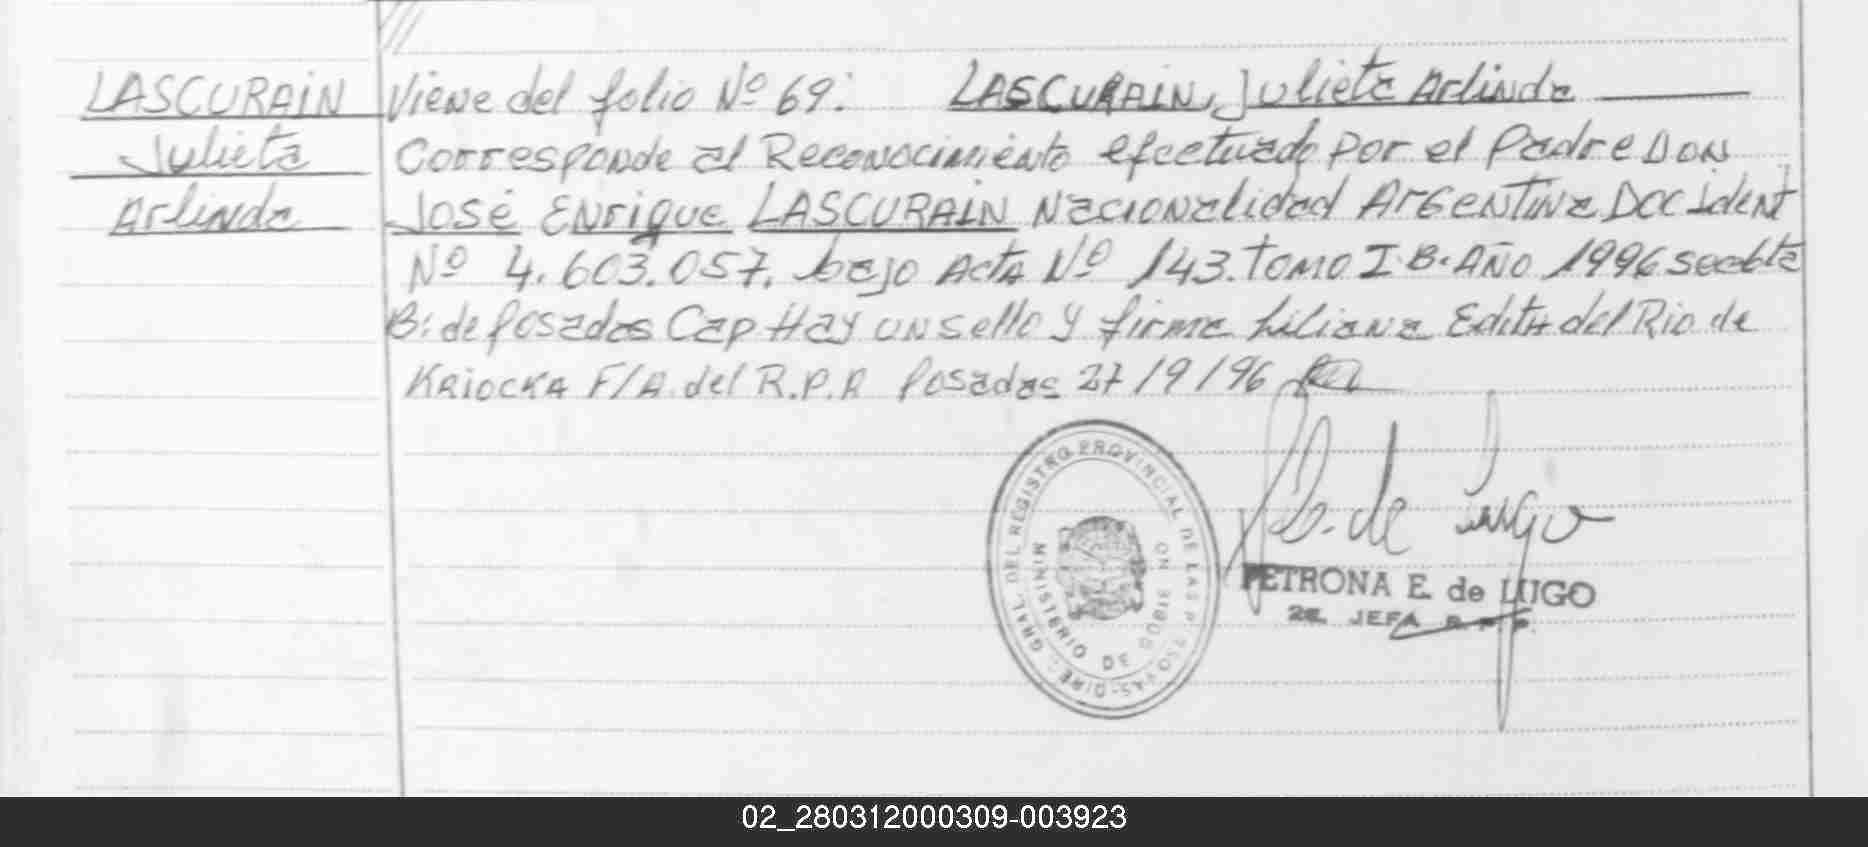 LASCURAIN
Julieta
Arlinda
Viene del folio Nº 69: LASCURAIN, Julieta Arlinda
Corresponde al Reconocimiento efectuado por el Padre DON
José Enrique LASCURAIN Nacionalidad Argentina Doc Ident
Nº 4.603.057, bajo Acta Nº 143. Tomo I B. Año 1996
B: de Posadas Cap Hay un sello y firma Liliana Edith del Rio de
KRIOCKA F/A. del R.P.P. Posadas 27/9/96
P. de Lugo
PETRONA E. de LUGO
JEFA
DIRE. GRAL. DEL REGISTRO PROVINCIAL DE LAS P
MINISTERIO DE GOBIERNO
02_280312000309-003923